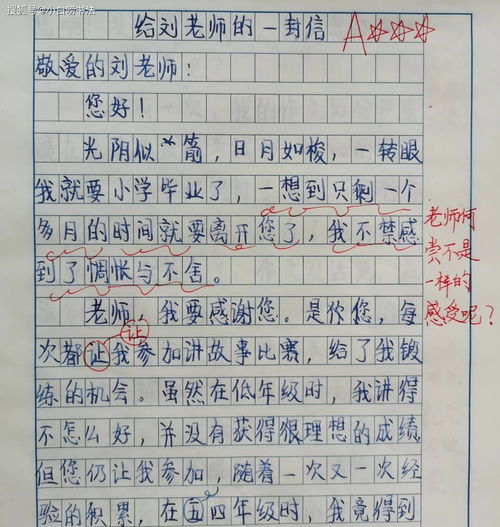 搜狐号@小白劳书法
给刘老师的一封信
A☆☆☆
敬爱的刘老师:
您好!
光阴似箭,日月如梭,一转眼
我就要小学毕业了,一想到只剩一个
多月的时间就要离开您了,我不禁感
到了惆怅与不舍。
老师何
尝不是
一样的
感受呢?
老师,我要感谢您。是您,每
让
次都让我参加讲故事比赛,给了我锻
练的机会。虽然在低年级时,我讲得
不怎么好,并没有获得很理想的成绩,
但您仍让我参加,随着一次又一次经
验的积累,在五四年级时,我竟得到